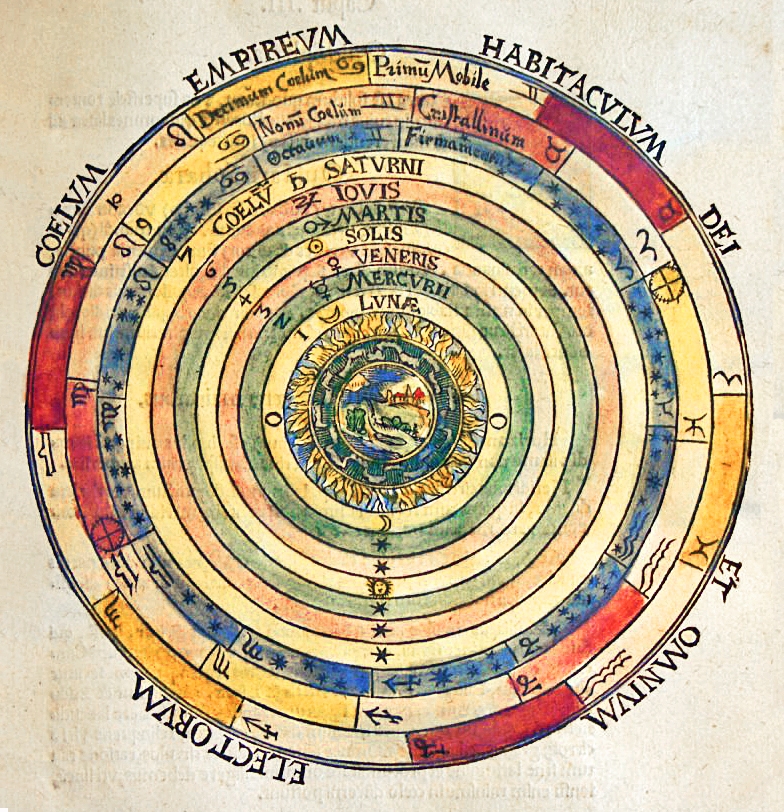 COELVM EMPIREVM HABITACVLVM DEI ET OMNIVM ELECTORVM
Decimum Coelum ♋ Primū Mobile ♊
♋ Nonū Coelum ♊ Cristallinum ♉
♋ Octauum ♊ Firmamentum
7 COELV̄ ♄ SATVRNI
6 ♃ IOVIS
5 ♂ MARTIS
4 ☉ SOLIS
3 ♀ VENERIS
2 ☿ MERCVRII
1 ☽ LVNÆ